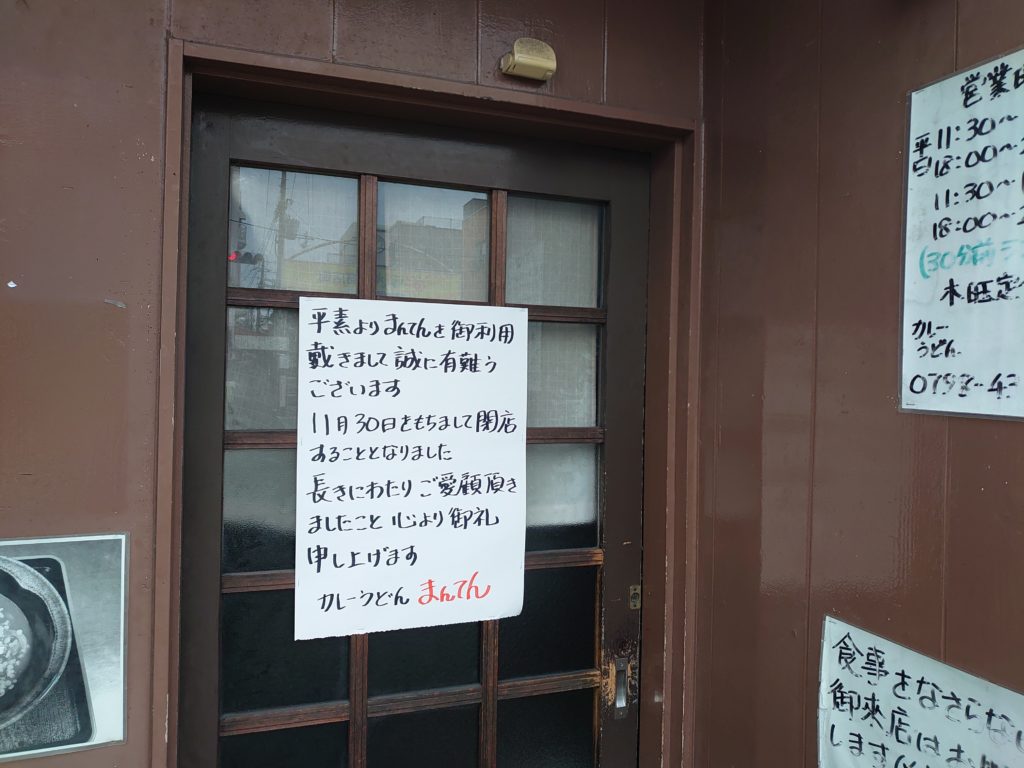 平素よりまんてんを御利用
戴きまして誠に有難う
ございます
11月30日をもちまして閉店
することとなりました
長きにわたりご愛顧頂き
ましたこと心より御礼
申し上げます
カレーうどん まんてん
営業日
平日 11:30〜
18:00〜
11:30〜
18:00〜
(30分前
木曜定
カレー
うどん
0798-43
食事をなさらない
御来店はお
します